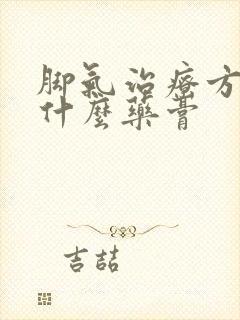 脚氣治療方
什麼藥膏
吉喆